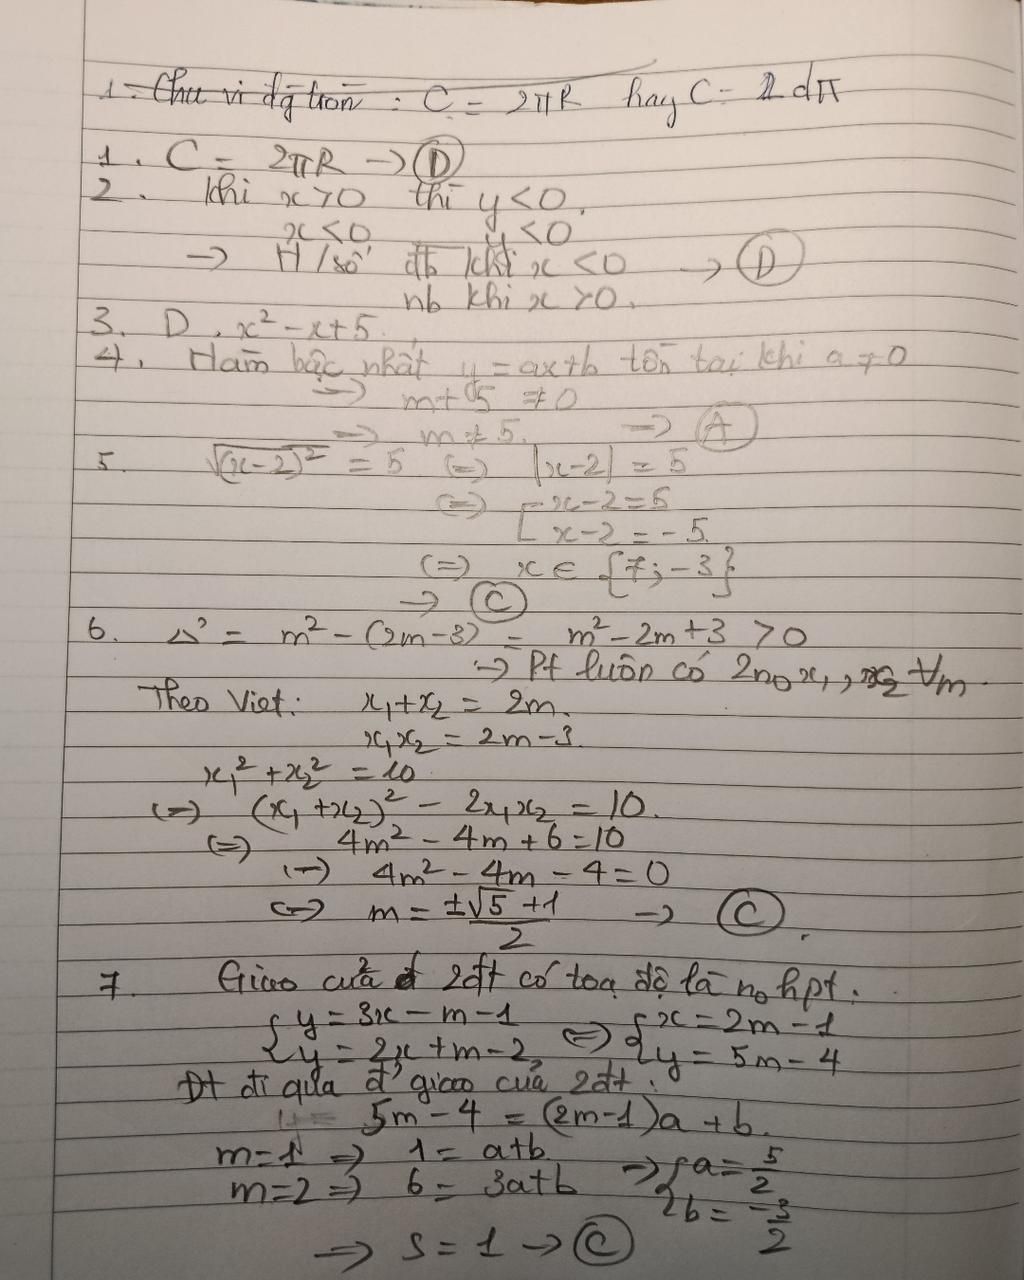 1. Chu vi đg tròn : C = 2πR hay C = 2 dπ
1. C = 2πR → D
2. khi x>0 thì y<0.
x<0 y<0
→ H/số đb khi x<0 → D
nb khi x>0.
3. D. x² - x + 5.
4. Hàm bậc nhất y = ax+b tồn tại khi a ≠ 0
→ m+5 ≠ 0
→ m ≠ 5. → A
5. √(x-2)² = 5 (=) |x-2| = 5
(=) [ x-2=5
x-2 = -5.
(=) x ∈ {7; -3}
→ C
6. Δ' = m² - (2m-3) = m² - 2m + 3 > 0
→ Pt luôn có 2no x₁, x₂ ∀m.
Theo Viet: x₁+x₂ = 2m.
x₁x₂ = 2m-3.
x₁² + x₂² = 10
(=) (x₁+x₂)² - 2x₁x₂ = 10.
(=) 4m² - 4m + 6 = 10
(=) 4m² - 4m - 4 = 0
(=) m = (±√5 + 1)/2 → C.
7. Giao của 2đt có toạ độ là no hpt:
{ y = 3x - m - 1 (=) { x = 2m - 1
y = 2x + m - 2 y = 5m - 4
Đt đi qua đ' giao của 2đt:
5m - 4 = (2m-1)a + b.
m=1 ⇒ 1 = a+b
m=2 ⇒ 6 = 3a+b → { a = 5/2
b = -3/2
⇒ S = 1 → C